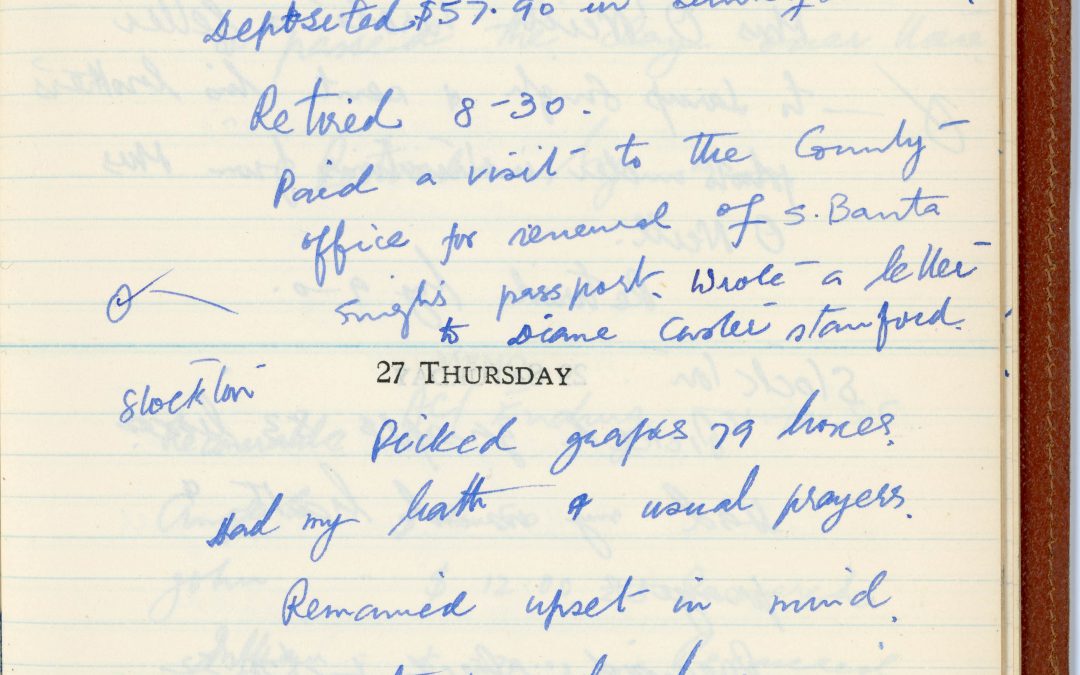 Deposited $57.90 in
Retired 8-30.
Paid a visit to the County
office for renewal of S. Banta
Singh's passport. Wrote a letter
to Diane Caster stanford.
27 THURSDAY
Stockton
Picked grapes 79 boxes.
Had my bath & usual prayers.
Remained upset in mind.